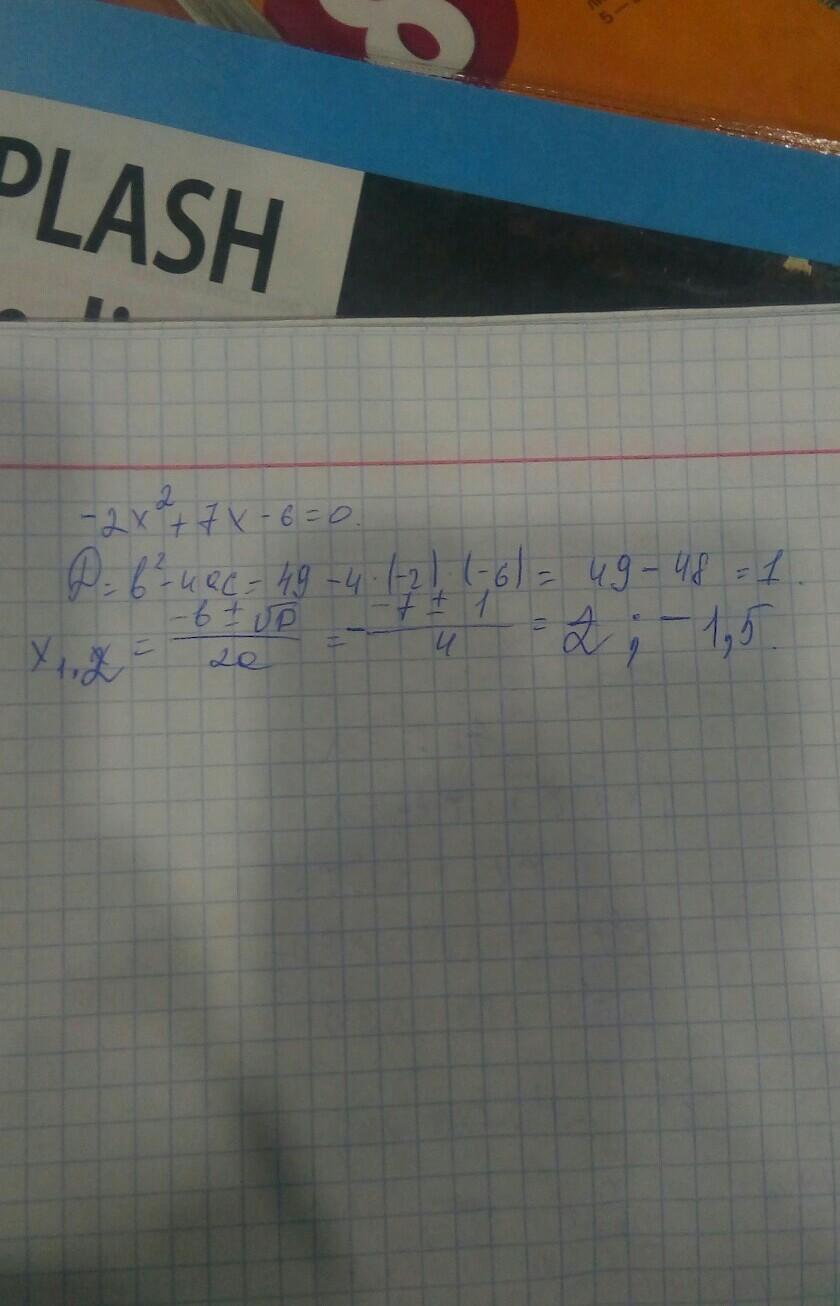 PLASH
-2x² + 7x - 6 = 0.
D = b² - 4ac = 49 - 4 · (-2) · (-6) = 49 - 48 = 1.
x₁,₂ = (-b ± √D)/(2a) = -(-7 ± 1)/4 = 2 ; -1,5.